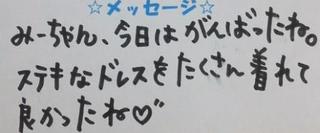 ☆メッセージ☆
みーちゃん、今日は がんばったね。
ステキなドレスをたくさん着れて
良かったね♡"